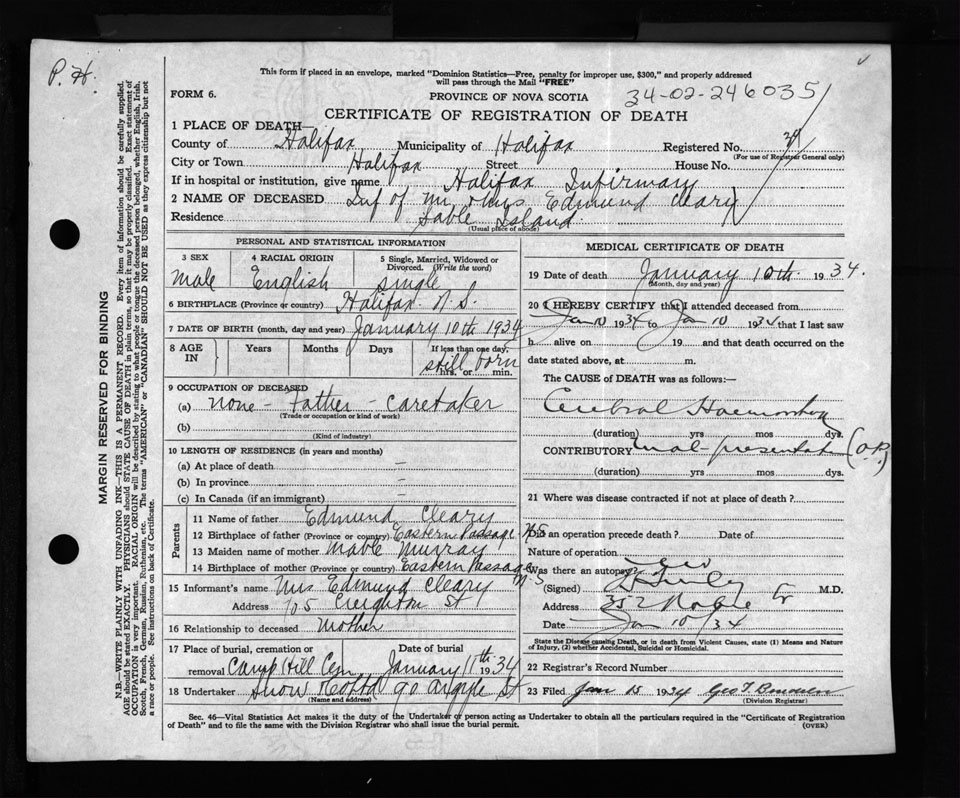 P. H.
This form if placed in an envelope, marked "Dominion Statistics—Free, penalty for improper use, $300," and properly addressed
will pass through the Mail "FREE"
FORM 6.
PROVINCE OF NOVA SCOTIA
34-02-246035
CERTIFICATE OF REGISTRATION OF DEATH
1 PLACE OF DEATH—
County of Halifax Municipality of Halifax Registered No. 39
(For use of Registrar General only)
City or Town Halifax Street House No.
If in hospital or institution, give name Halifax Infirmary
2 NAME OF DECEASED Inf of Mr & Mrs Edmund Cleary
Residence Sable Island
(Usual place of abode)
PERSONAL AND STATISTICAL INFORMATION
3 SEX
male
4 RACIAL ORIGIN
English
5 Single, Married, Widowed or
Divorced. (Write the word)
single
6 BIRTHPLACE (Province or country) Halifax N.S.
7 DATE OF BIRTH (month, day and year) January 10th 1934
8 AGE
IN
Years
Months
Days
If less than one day,
still born
hrs. or min.
9 OCCUPATION OF DECEASED
(a) none - Father - Caretaker
(Trade or occupation or kind of work)
(b)
(Kind of industry)
10 LENGTH OF RESIDENCE (in years and months)
(a) At place of death —
(b) In province —
(c) In Canada (if an immigrant) —
Parents
11 Name of father Edmund Cleary
12 Birthplace of father (Province or country) Eastern Passage N.S
13 Maiden name of mother Mable Murray
14 Birthplace of mother (Province or country) Eastern Passage N-S
15 Informant's name Mrs Edmund Cleary
Address 705 Creighton St
16 Relationship to deceased Mother
17 Place of burial, cremation or
removal Camp Hill Cem
Date of burial
January 11th 1934
18 Undertaker Snow & Co Ltd 90 Argyle St
(Name and address)
MEDICAL CERTIFICATE OF DEATH
19 Date of death January 10th 1934.
(Month, day and year)
20 I HEREBY CERTIFY that I attended deceased from
Jan 10 1934 to Jan 10 1934 that I last saw
h alive on 19 and that death occurred on the
date stated above, at m.
The CAUSE of DEATH was as follows:—
Cerebral Haemorrhage
(duration) yrs mos dys.
CONTRIBUTORY mal-presentation (O.P.)
(duration) yrs mos dys.
21 Where was disease contracted if not at place of death?
Did an operation precede death? Date of
Nature of operation
Was there an autopsy?
(Signed) M.D.
Address 352
Date Jan 10/34
State the Disease causing Death, or in death from Violent Causes, state (1) Means and Nature
of Injury, (2) whether Accidental, Suicidal or Homicidal.
22 Registrar's Record Number
23 Filed Jan 15 1934 Geo T
(Division Registrar)
Sec. 46—Vital Statistics Act makes it the duty of the Undertaker or person acting as Undertaker to obtain all the particulars required in the "Certificate of Registration
of Death" and to file the same with the Division Registrar who shall issue the burial permit.
(OVER)
MARGIN RESERVED FOR BINDING
N.B.—WRITE PLAINLY WITH UNFADING INK—THIS IS A PERMANENT RECORD. Every item of information should be carefully supplied.
AGE should be stated EXACTLY. PHYSICIANS should STATE CAUSE OF DEATH in plain terms, so that it may be properly classified. Exact statement of
OCCUPATION is very important. RACIAL ORIGIN will be described by stating to what people or tongue the deceased person belonged, whether English, Irish,
Scotch, French, German, Russian, Ruthenian, etc. The terms "AMERICAN" or "CANADIAN" SHOULD NOT BE USED as they express citizenship but not
a race or people. See instructions on back of Certificate.